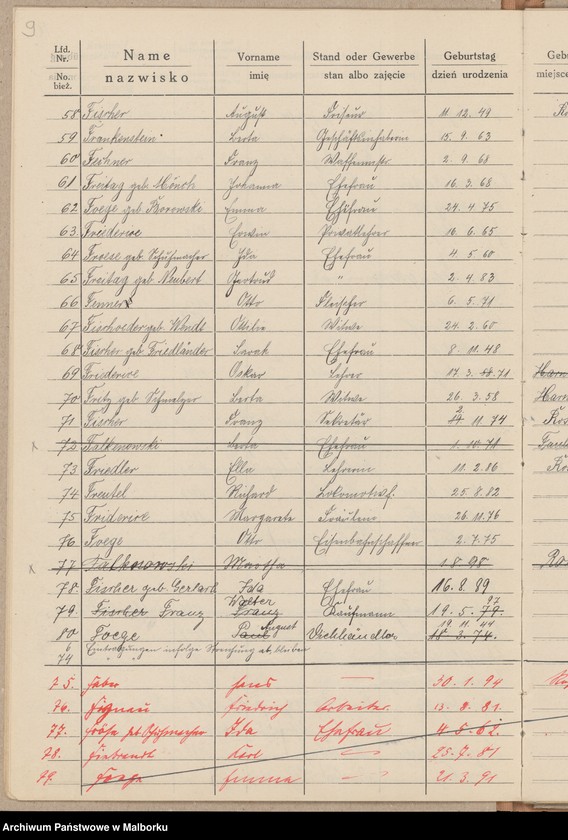 9
Lfd. Nr. Name Vorname Stand oder Gewerbe Geburtstag Gebu
No. bież. nazwisko imię stan albo zajęcie dzień urodzenia miejsce
58 Fischer August Friseur 11. 12. 49
59 Frankenstein Berta 15. 9. 63
60 Fechner Franz 2. 9. 61
61 Freitag geb. Mönch Johanna Ehefrau 16. 3. 68
62 Foege geb. Borowski Emma Ehefrau 24. 4. 75
63 Freiderice Erwin Privatlehrer 16. 6. 65
64 Froese geb. Schuhmacher Ida Ehefrau 4. 5. 60
65 Freitag geb. Neubert Gertrud " 2. 4. 83
66 Fenner Otto Fleischer 6. 5. 71
67 geb. Wends Ottilie Witwe 24. 2. 60
68 Fischer geb. Friedländer Sarah Ehefrau 8. 11. 48
69 Friederice Oskar Lehrer 17. 3. 71
70 Fritz geb. Schmelzer Berta Witwe 26. 3. 58
71 Fischer Franz Sekretär 2. 11. 74
72 Falkenowski Berta Ehefrau 1. 10. 78
73 Friedler Ella Lehrerin 11. 2. 86
74 Freutel Richard 25. 8. 82
75 Friderice Margarete Fräulein 26. 11. 76
76 Foege Otto Eisenbahnschaffner 2. 7. 75
77 Falkenowski Martha 1. 8. 98
78. Fischer geb. Gerlach Ida Ehefrau 16. 8. 89
79. Fischer Franz Walter Franz Kaufmann 19. 5. 79. 97
80 Foege Paul August Viehhändler 18. 3. 74. 19. 11. 44
74 Eintragungen infolge Streichung ab, bleiben
75. Faber Hans — 30. 1. 94
76. Friedrich Arbeiter 13. 8. 81.
77. geb. Schuhmacher Ida Ehefrau 4. 5. 62.
78. Karl — 25. 7. 81
79. Foege Emma — 21. 3. 91
Archiwum Państwowe w Malborku